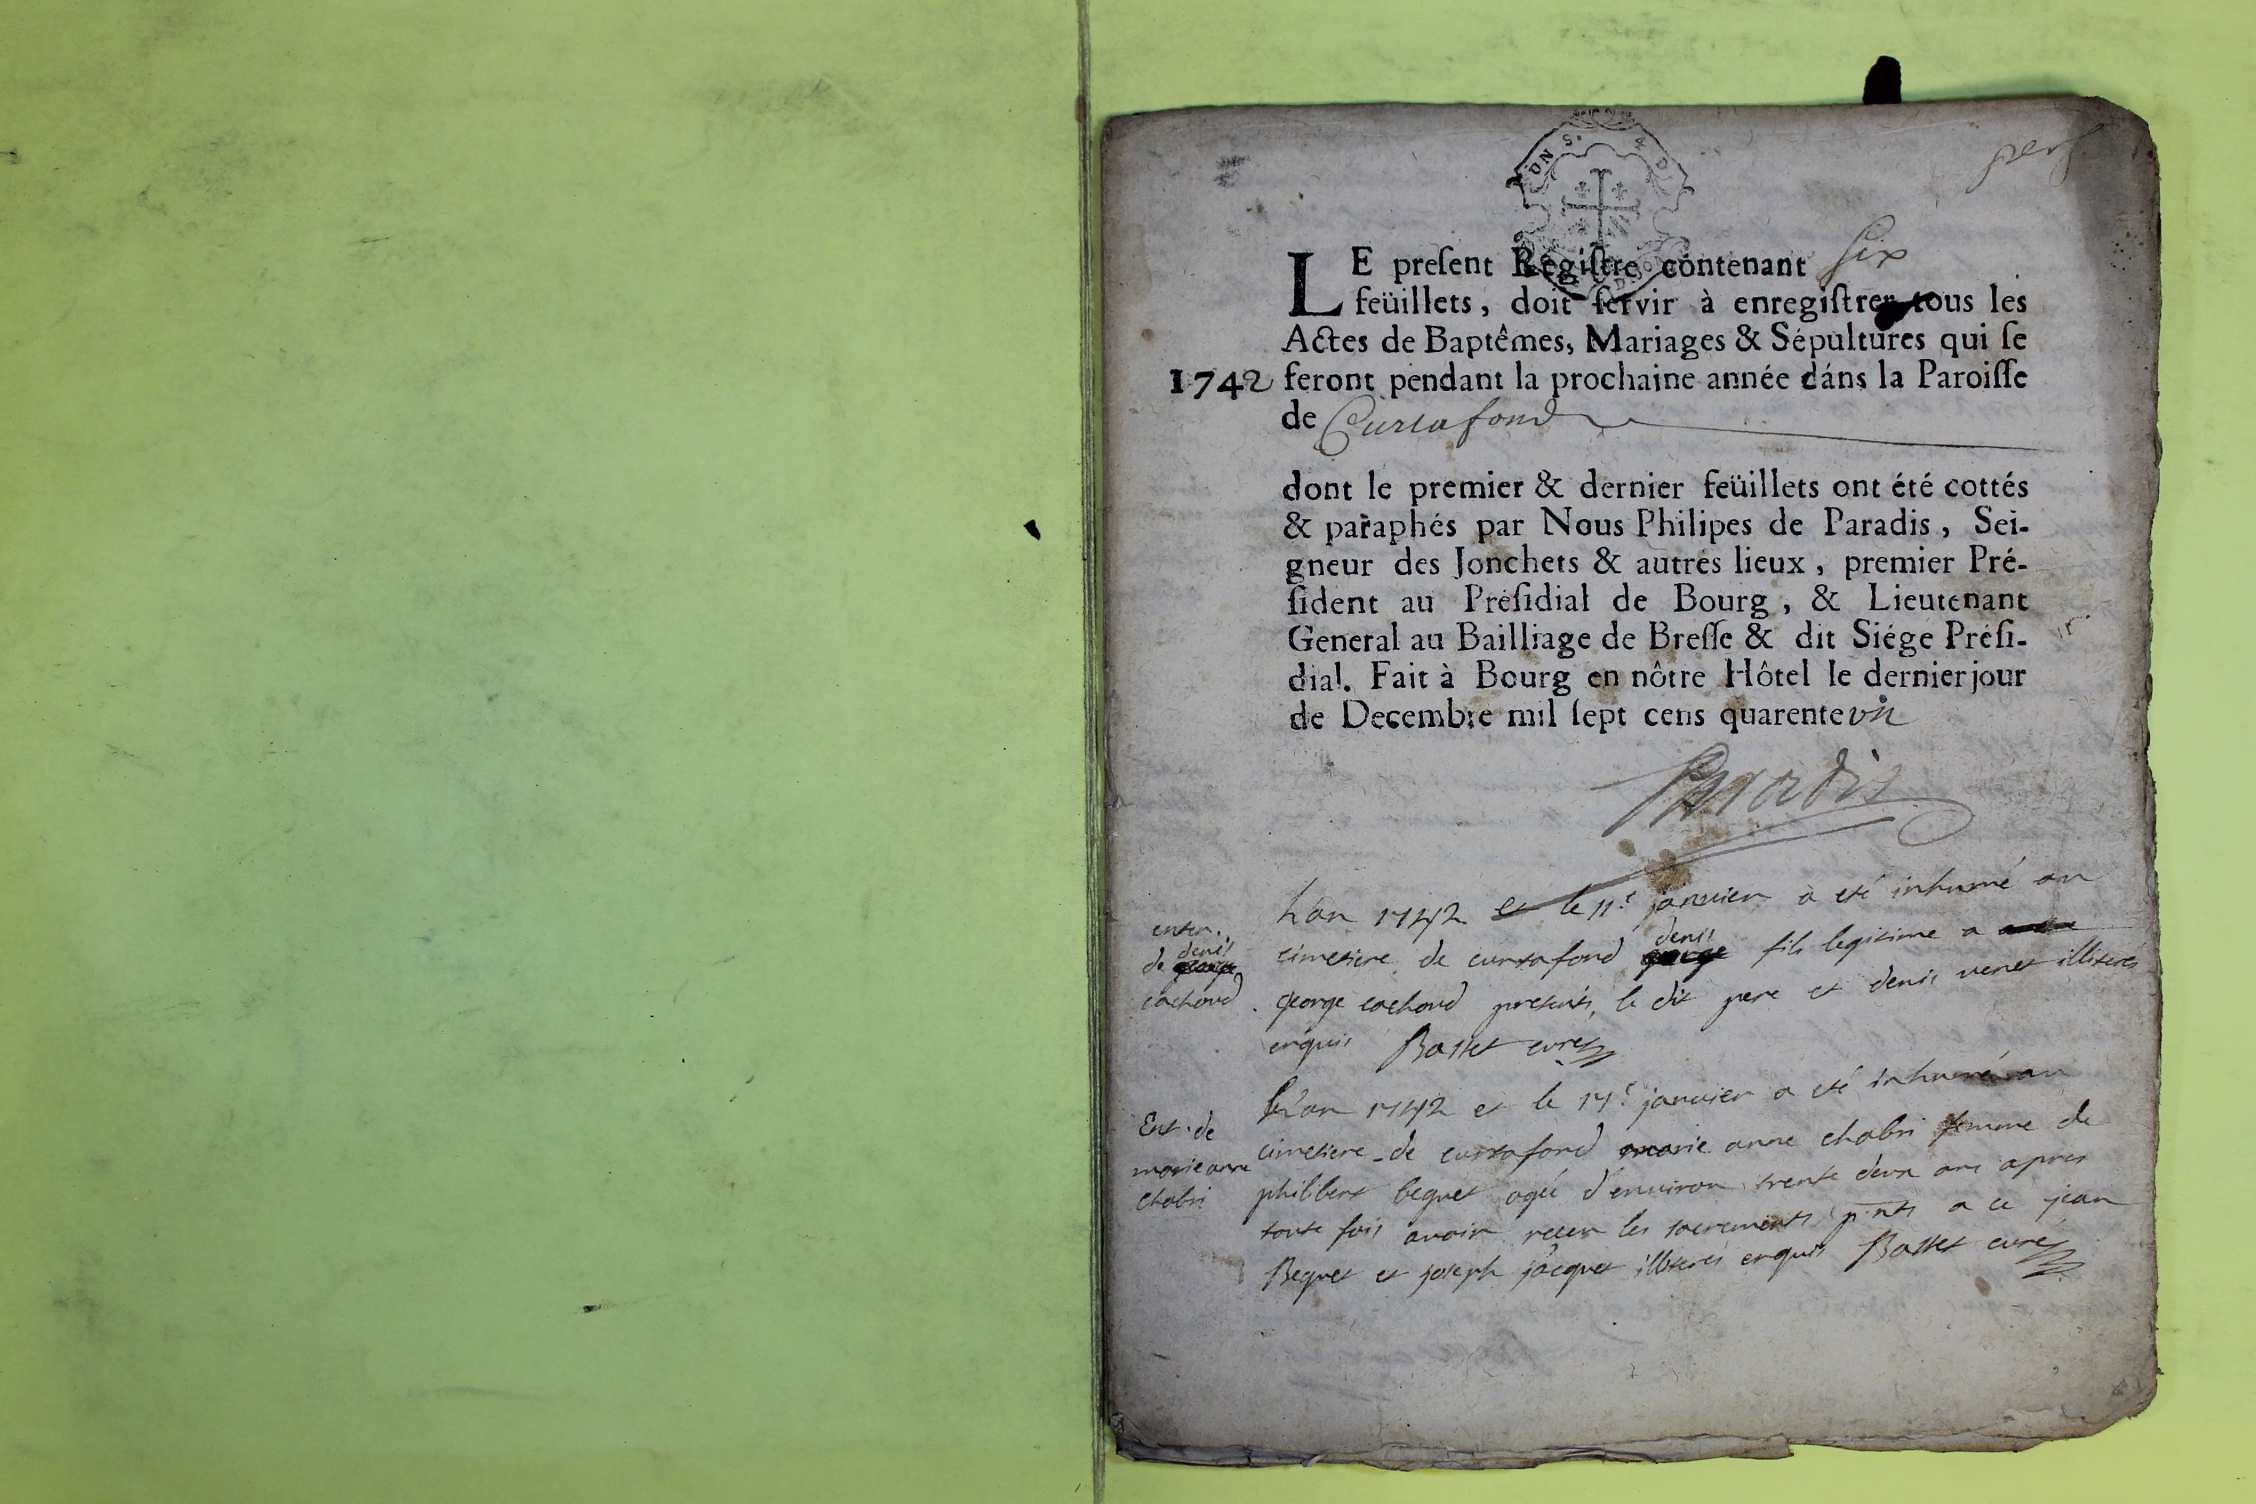 UN S. 4 D.
LE preſent Regiſtre contenant ſix
feüillets, doit ſervir à enregiſtrer tous les
Actes de Baptêmes, Mariages & Sépultures qui ſe
1742 feront pendant la prochaine année dáns la Paroiſſe
de Curtafond
dont le premier & dernier feüillets ont été cottés
& paraphés par Nous Philipes de Paradis, Sei-
gneur des Jonchets & autres lieux, premier Pré-
ſident au Préſidial de Bourg, & Lieutenant
General au Bailliage de Breſſe & dit Siége Préſi-
dial. Fait à Bourg en nôtre Hôtel le dernier jour
de Decembre mil ſept cens quarente vn
Paradis
enter.
de denis george
cachoud
L'an 1742 et le 11e janvier a eté inhumé au
cimetiere de curtafond george denis fils legitime a
george cachoud presents, le dit pere et denis venet illiterés
enquis Basset curé
Ent. de
marie anne
chabri
L'an 1742 et le 17e janvier a eté inhumé au
cimetiere de curtafond marie anne chabri femme de
philibert beguet agée d'environ trente deux ans apres
toute fois avoir receu les sacrements p.nts a ce jean
Beguet et joseph jacquet illiterés enquis Basset curé